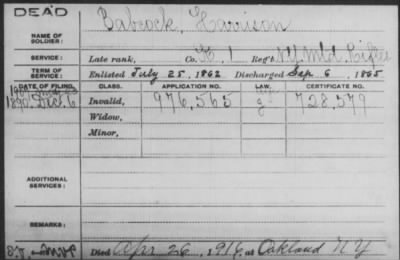 DEAD
Babcock, Harrison
NAME OF SOLDIER:
SERVICE: Late rank, Co. K, 1 Reg't N.Y. Mtd. Rifles
TERM OF SERVICE: Enlisted July 25, 1862 Discharged Sep. 6, 1865
DATE OF FILING. CLASS. APPLICATION NO. CERTIFICATE NO.
1890, Dec. 6 Invalid, 976,565 728,579
Widow,
Minor,
ADDITIONAL SERVICES:
REMARKS:
Died Apr 26, 1916, at Oakland N Y